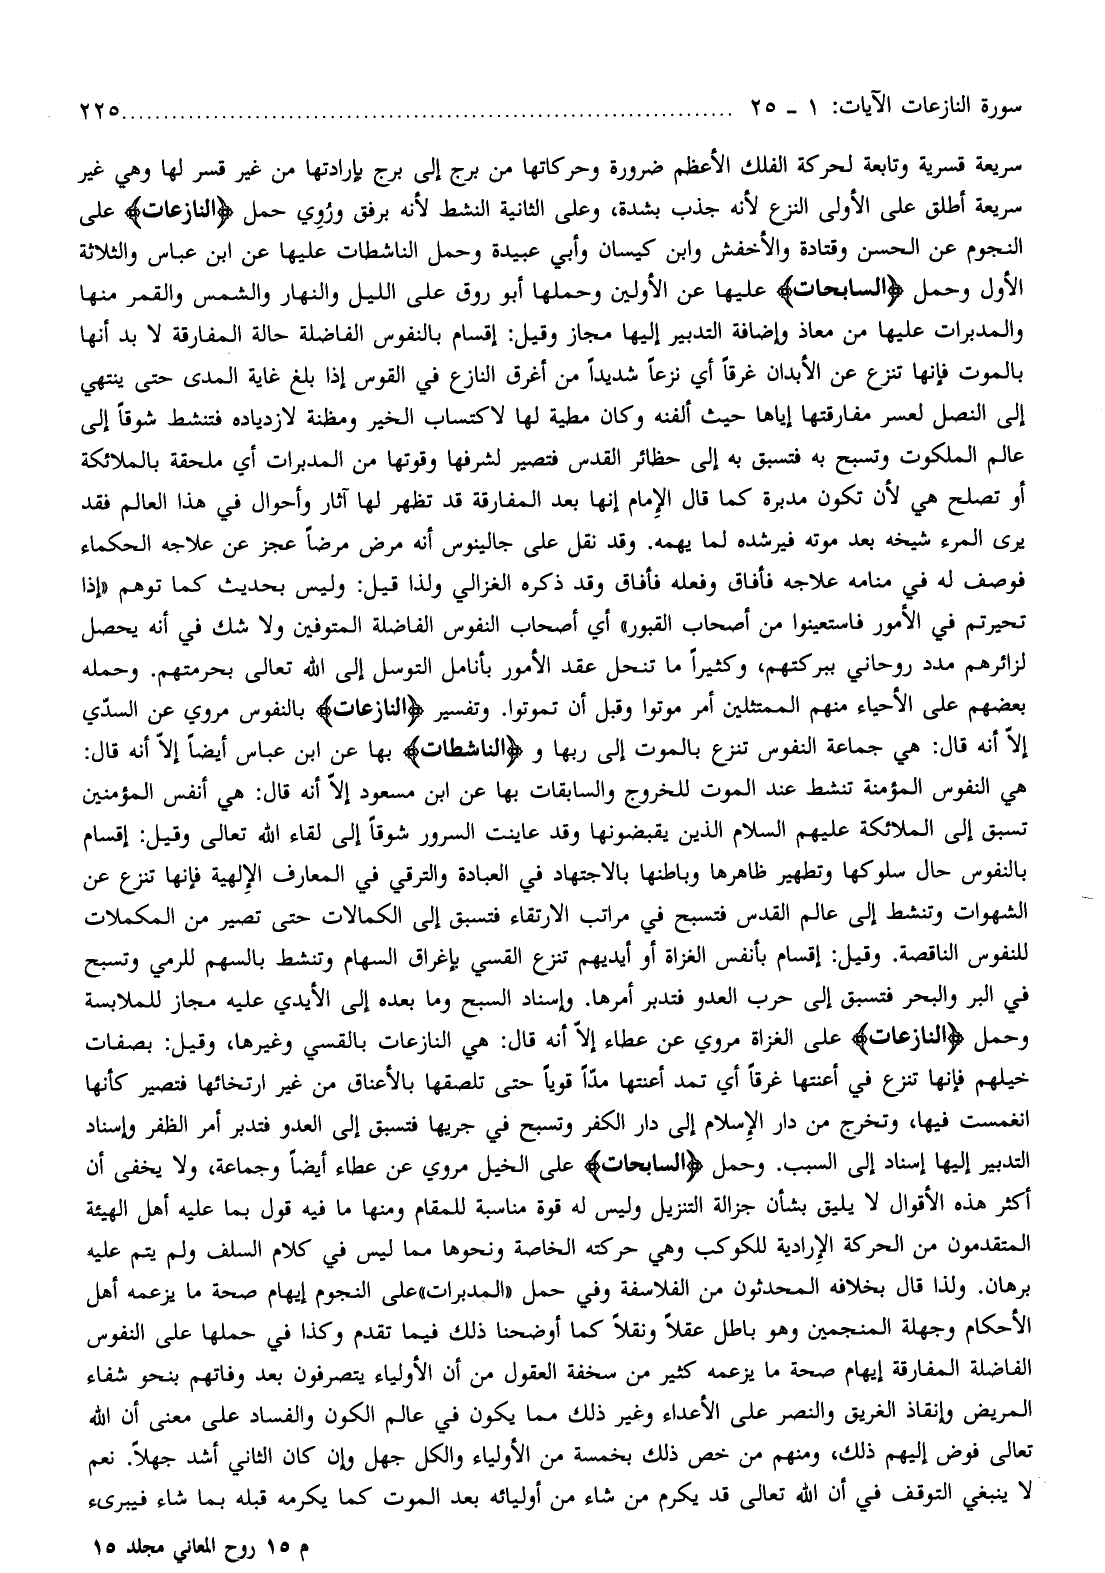 سورة النازعات الآيات: ١ ـ ٢٥ ........................................................................ ٢٢٥
سريعة قسرية وتابعة لحركة الفلك الأعظم ضرورة وحركاتها من برج إلى برج بإرادتها من غير قسر لها وهي غير
سريعة أطلق على الأولى النزع لأنه جذب بشدة، وعلى الثانية النشط لأنه برفق ورُوِي حمل ﴿النازعات﴾ على
النجوم عن الحسن وقتادة والأخفش وابن كيسان وأبي عبيدة وحمل الناشطات عليها عن ابن عباس والثلاثة
الأول وحمل ﴿السابحات﴾ عليها عن الأولين وحملها أبو روق على الليل والنهار والشمس والقمر منها
والمدبرات عليها من معاذ وإضافة التدبير إليها مجاز وقيل: إقسام بالنفوس الفاضلة حالة المفارقة لا بد أنها
بالموت فإنها تنزع عن الأبدان غرقاً أي نزعاً شديداً من أغرق النازع في القوس إذا بلغ غاية المدى حتى ينتهي
إلى النصل لعسر مفارقتها إياها حيث ألفنه وكان مطية لها لاكتساب الخير ومظنة لازدياده فتنشط شوقاً إلى
عالم الملكوت وتسبح به فتسبق به إلى حظائر القدس فتصير لشرفها وقوتها من المدبرات أي ملحقة بالملائكة
أو تصلح هي لأن تكون مدبرة كما قال الإمام إنها بعد المفارقة قد تظهر لها آثار وأحوال في هذا العالم فقد
يرى المرء شيخه بعد موته فيرشده لما يهمه. وقد نقل على جالينوس أنه مرض مرضاً عجز عن علاجه الحكماء
فوصف له في منامه علاجه فأفاق وفعله فأفاق وقد ذكره الغزالي ولذا قيل: وليس بحديث كما توهم «إذا
تحيرتم في الأمور فاستعينوا من أصحاب القبور» أي أصحاب النفوس الفاضلة المتوفين ولا شك في أنه يحصل
لزائرهم مدد روحاني ببركتهم، وكثيراً ما تنحل عقد الأمور بأنامل التوسل إلى الله تعالى بحرمتهم. وحمله
بعضهم على الأحياء منهم الممتثلين أمر موتوا وقبل أن تموتوا. وتفسير ﴿النازعات﴾ بالنفوس مروي عن السدّي
إلاّ أنه قال: هي جماعة النفوس تنزع بالموت إلى ربها و ﴿الناشطات﴾ بها عن ابن عباس أيضاً إلاّ أنه قال:
هي النفوس المؤمنة تنشط عند الموت للخروج والسابقات بها عن ابن مسعود إلاّ أنه قال: هي أنفس المؤمنين
تسبق إلى الملائكة عليهم السلام الذين يقبضونها وقد عاينت السرور شوقاً إلى لقاء الله تعالى وقيل: إقسام
بالنفوس حال سلوكها وتطهير ظاهرها وباطنها بالاجتهاد في العبادة والترقي في المعارف الإلهية فإنها تنزع عن
الشهوات وتنشط إلى عالم القدس فتسبح في مراتب الارتقاء فتسبق إلى الكمالات حتى تصير من المكملات
للنفوس الناقصة. وقيل: إقسام بأنفس الغزاة أو أيديهم تنزع القسي بإغراق السهام وتنشط بالسهم للرمي وتسبح
في البر والبحر فتسبق إلى حرب العدو فتدبر أمرها. وإسناد السبح وما بعده إلى الأيدي عليه مجاز للملابسة
وحمل ﴿النازعات﴾ على الغزاة مروي عن عطاء إلاّ أنه قال: هي النازعات بالقسي وغيرها، وقيل: بصفات
خيلهم فإنها تنزع في أعنتها غرقاً أي تمد أعنتها مدّاً قوياً حتى تلصقها بالأعناق من غير ارتخائها فتصير كأنها
انغمست فيها، وتخرج من دار الإسلام إلى دار الكفر وتسبح في جريها فتسبق إلى العدو فتدبر أمر الظفر وإسناد
التدبير إليها إسناد إلى السبب. وحمل ﴿السابحات﴾ على الخيل مروي عن عطاء أيضاً وجماعة، ولا يخفى أن
أكثر هذه الأقوال لا يليق بشأن جزالة التنزيل وليس له قوة مناسبة للمقام ومنها ما فيه قول بما عليه أهل الهيئة
المتقدمون من الحركة الإرادية للكوكب وهي حركته الخاصة ونحوها مما ليس في كلام السلف ولم يتم عليه
برهان. ولذا قال بخلافه المحدثون من الفلاسفة وفي حمل «المدبرات»على النجوم إيهام صحة ما يزعمه أهل
الأحكام وجهلة المنجمين وهو باطل عقلاً ونقلاً كما أوضحنا ذلك فيما تقدم وكذا في حملها على النفوس
الفاضلة المفارقة إيهام صحة ما يزعمه كثير من سخفة العقول من أن الأولياء يتصرفون بعد وفاتهم بنحو شفاء
المريض وإنقاذ الغريق والنصر على الأعداء وغير ذلك مما يكون في عالم الكون والفساد على معنى أن الله
تعالى فوض إليهم ذلك، ومنهم من خص ذلك بخمسة من الأولياء والكل جهل وإن كان الثاني أشد جهلاً. نعم
لا ينبغي التوقف في أن الله تعالى قد يكرم من شاء من أوليائه بعد الموت كما يكرمه قبله بما شاء فيبرىء
م ١٥ روح المعاني مجلد ١٥